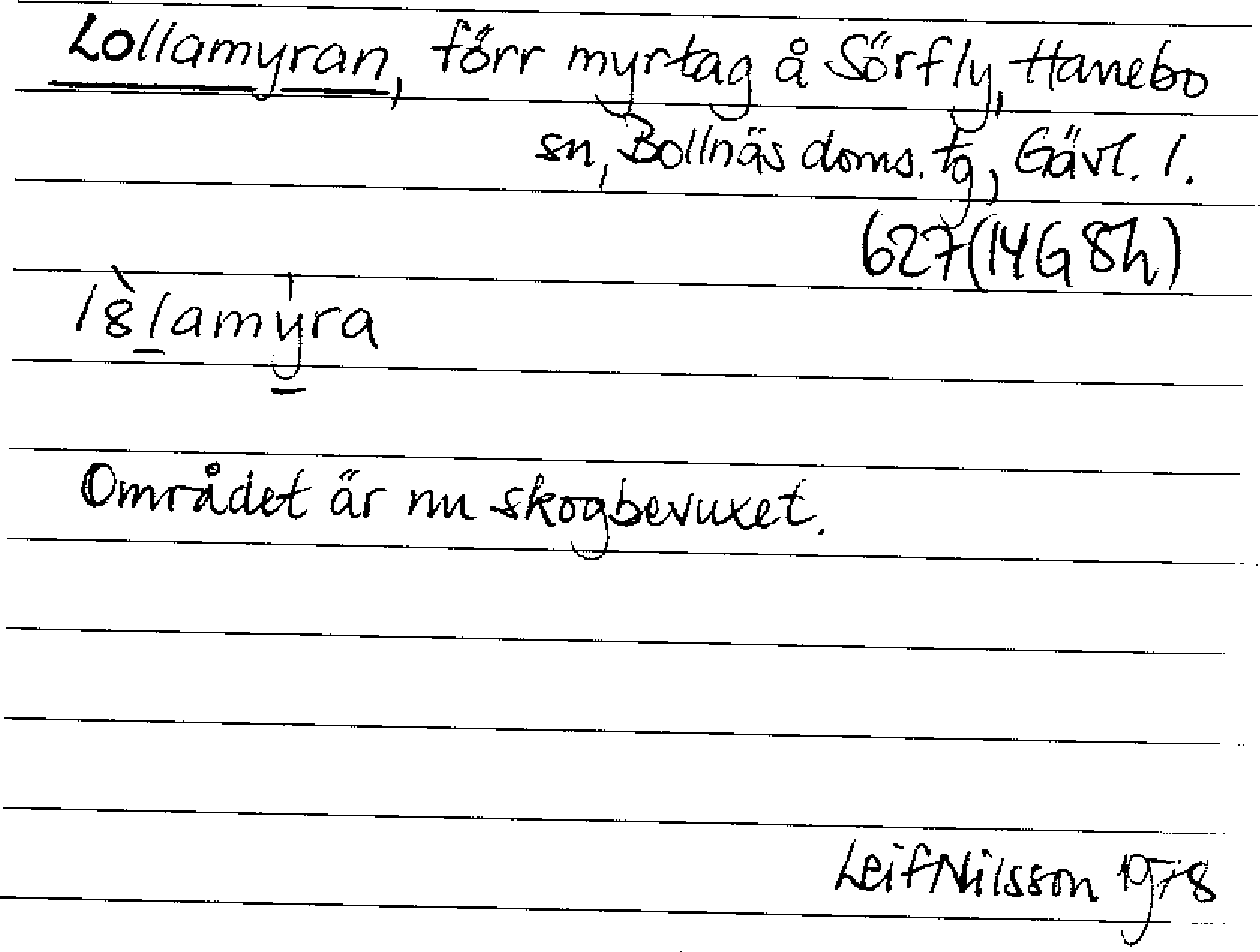 Lollamyran, förr myrtag å Sörfly, Hanebo
sn, Bollnäs doms. tg, Gävl. l.
627(14G8h)
l8̀l̲amy̳̍ra
Området är nu skogbevuxet.
Leif Nilsson 1978